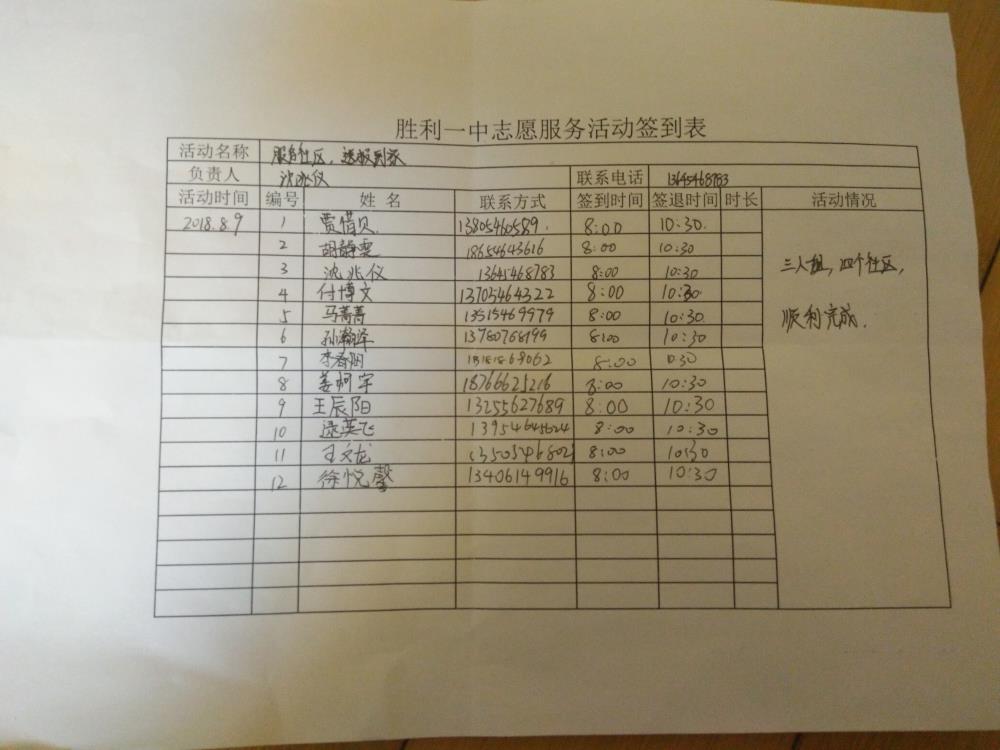 胜利一中志愿服务活动签到表
活动名称 服务社区,送报到家
负责人 沈兆仪 联系电话 13645468783
活动时间 编号 姓名 联系方式 签到时间 签退时间 时长 活动情况
2018.8.9 1 贾惜贝. 13805460589. 8:00 10:30.
2 胡静雯 18654643616 8:00 10:30
3 沈兆仪 13645468783 8:00 10:30
4 付博文 13705464322 8:00 10:30
5 马菁菁 13515469979 8:00 10:30
6 孙瀚泽 13780768199 8:00 10:30
7 李春阳 8:00 10:30
8 姜柯宇 18766625216 8:00 10:30
9 王辰阳 13255627689 8:00 10:30
10 逯英飞 13954645624 8:00 10:30
11 王文龙 13505346802 8:00 10:30
12 徐悦馨 13406149916 8:00 10:30
三人组,四个社区,
顺利完成.